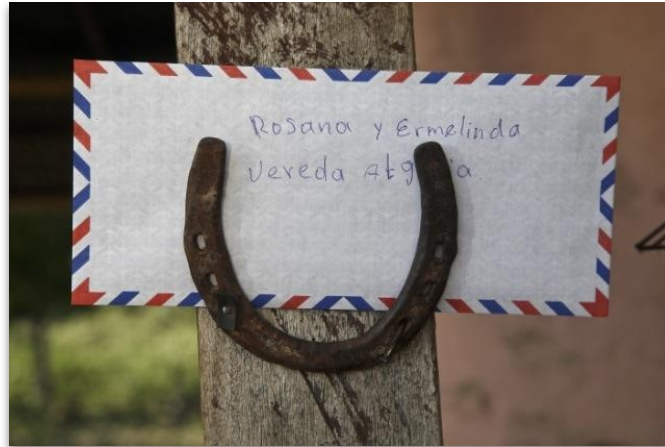 Rosana y Ermelinda
Vereda